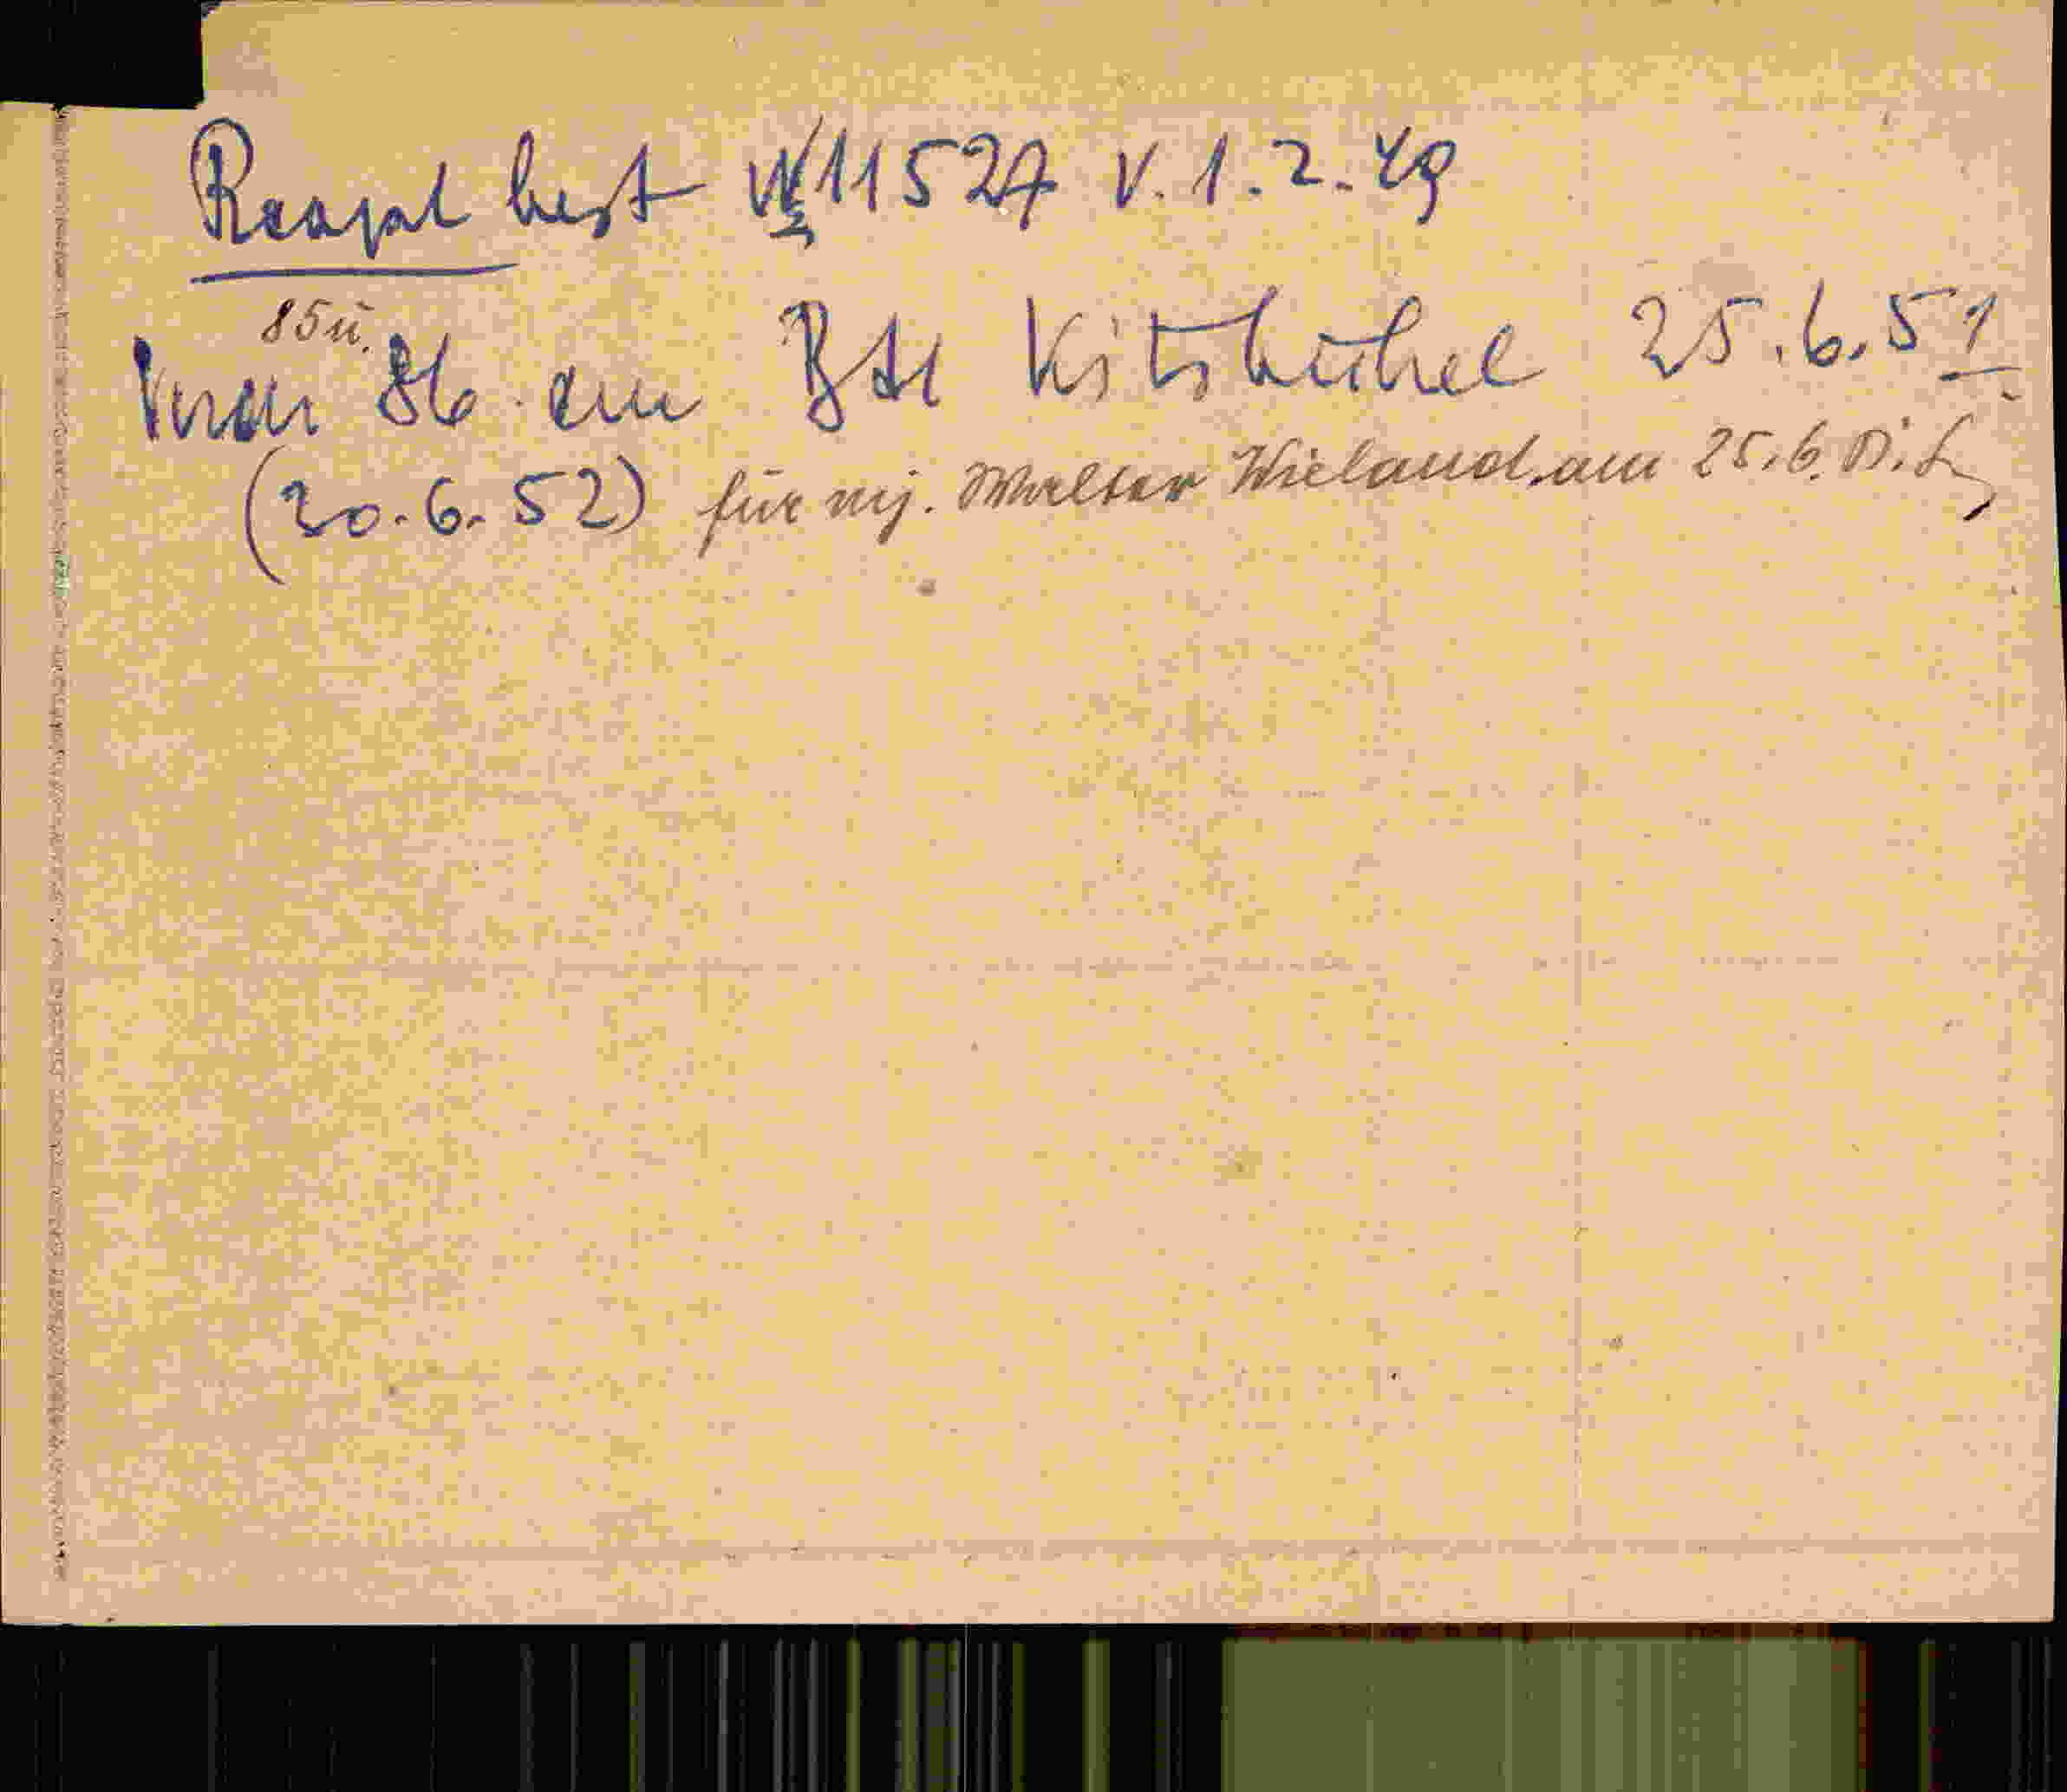 best W11527 v. 1.2.49
85 u.
86 an BH Kitzbühel 25.6.51
(20.6.52) für mj. Walter Wieland, am 25.6.